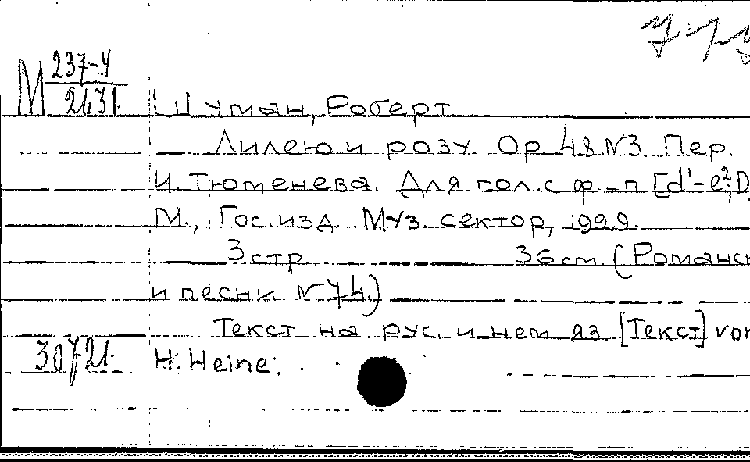 М 237-4
2431
Шуман, Роберт
Лилею и розу. Op 48 N3. Пер.
И. Тюменева. Для гол. с ф.-п [d'-e²; D
М., Гос. изд. Муз. сектор, 1929.
3 стр 36 cm. (Романсы
и песни. N 74.)
Текст на рус. и нем яз [Текст] von
30721. H. Heine.